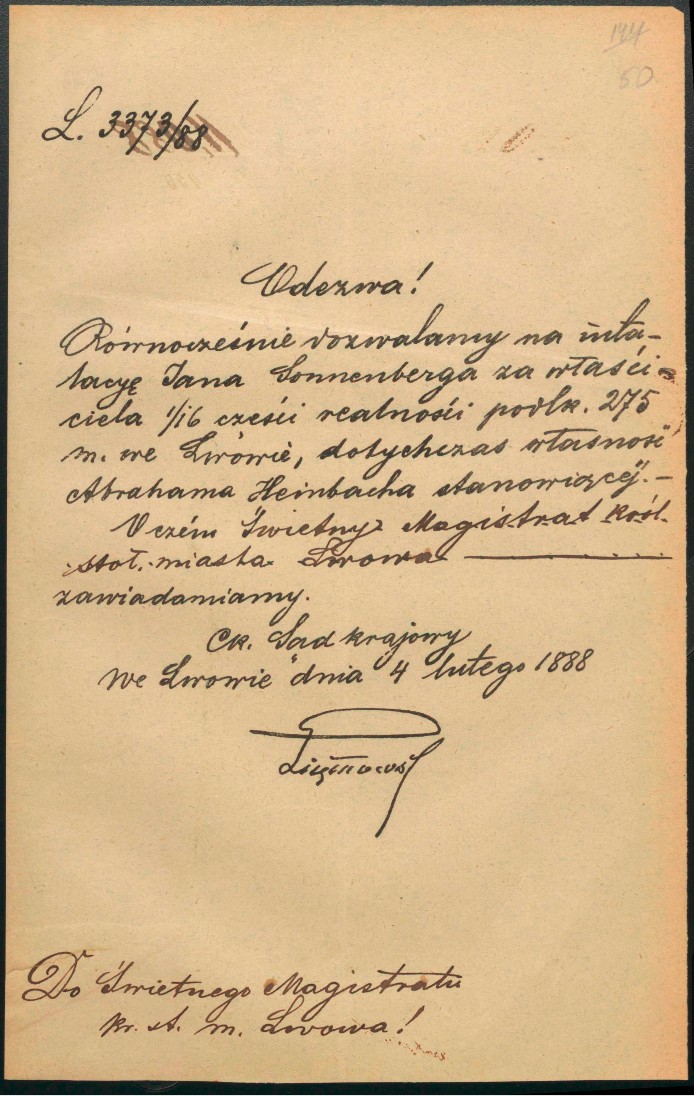 144
50
L. 3373/88
Odezwa!
Równocześnie dozwalamy na inta-
lacyę Jana Sonnenberga za właści-
ciela 1/16 cześci realności podlk. 275
m. we Lwówie, dotychczas własność
Abrahama Heinbacha stanowiącéj.-
O czém Świetny Magistrat król.
stoł. miasta Lwowa
zawiadamiamy.
Ck. Sad krajowy
We Lwowie dnia 4 lutego 1888
Do Świetnego Magistratu
kr. st. m. Lwowa!